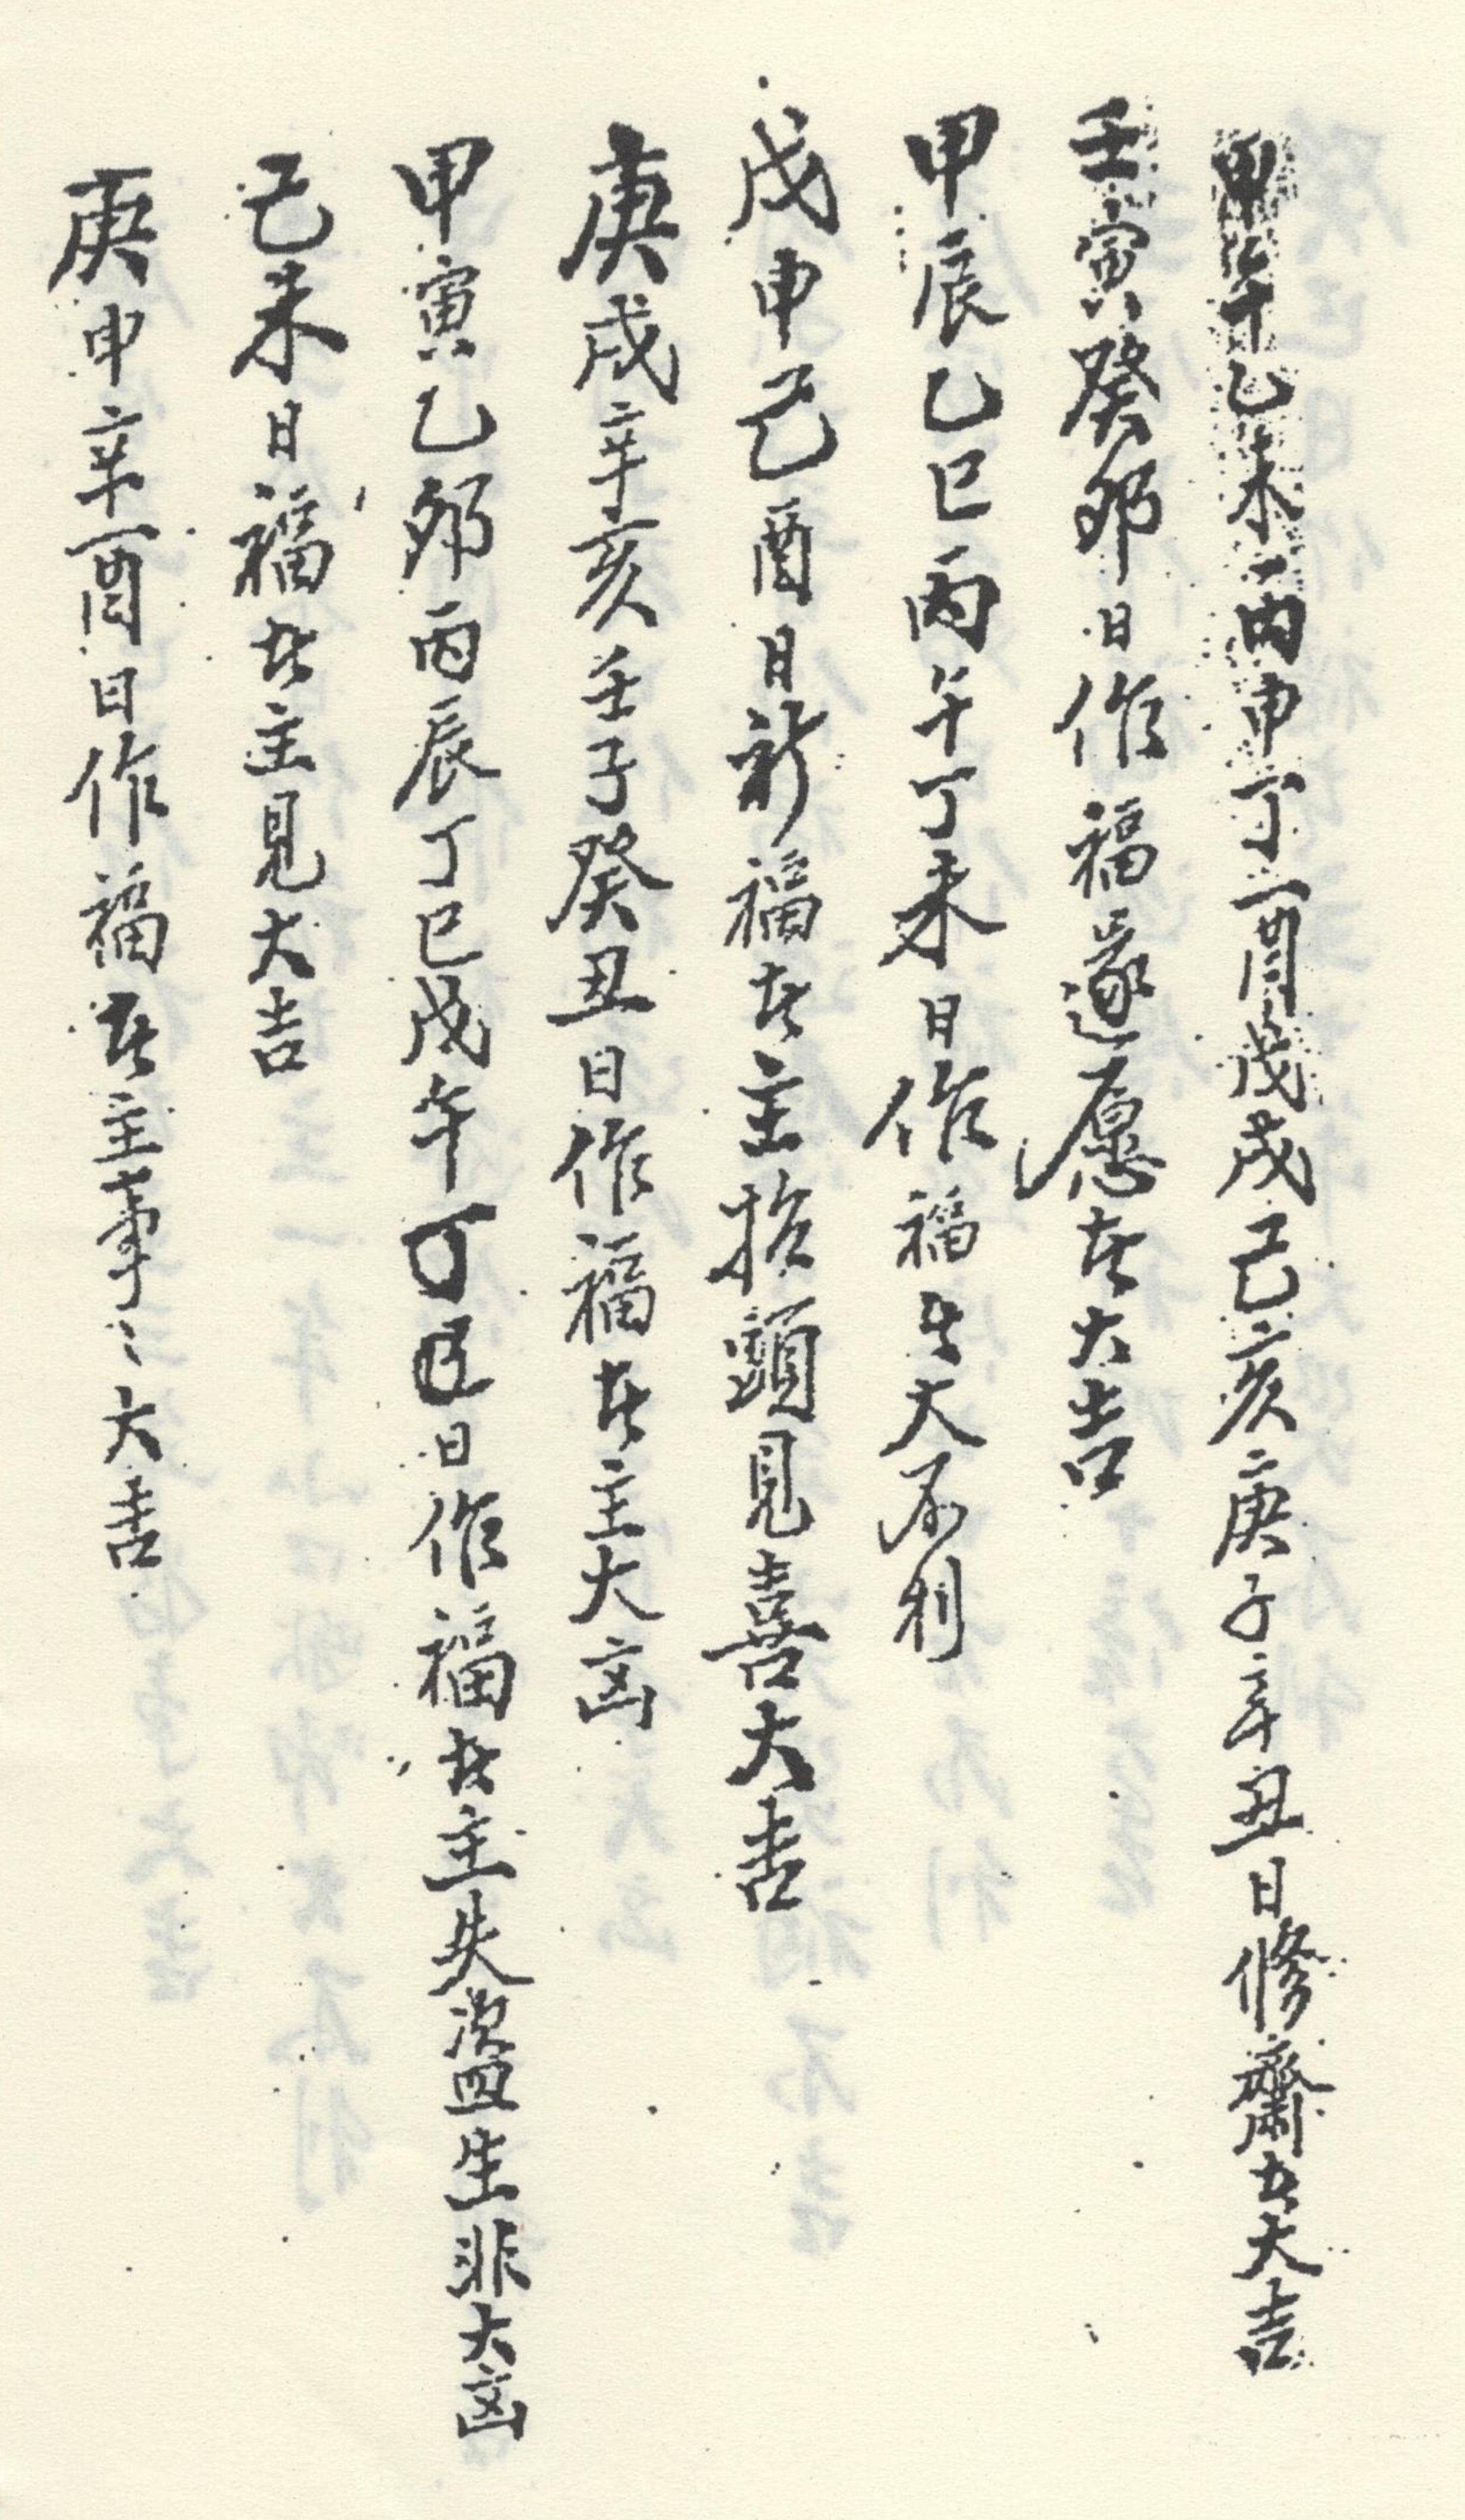 甲午乙未丙申丁酉戊戌己亥庚子辛丑日修齋者大吉
壬寅癸卯日作福遂愿者大吉
甲辰乙巳丙午丁未日作福者大不利
戊申己酉日祈福者主抬頭見喜大吉
庚戌辛亥壬子癸丑日作福者主大凶
甲寅乙卯丙辰丁巳戊午日作福者主失盜生非大凶
己未日福者主見大吉
庚申辛酉日作福者主事〻大吉